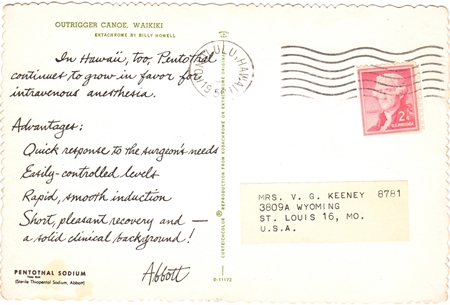 OUTRIGGER CANOE, WAIKIKI
EKTACHROME BY BILLY HOWELL
In Hawaii, too, Pentothal
continues to grow in favor for
intravenous anesthesia.
Advantages:
Quick response to the surgeon's needs
Easily-controlled levels
Rapid, smooth induction
Short, pleasant recovery and —
a solid clinical background!
Abbott
PENTOTHAL SODIUM
(Sterile Thiopental Sodium, Abbott)
CURTEICHCOLOR ® REPRODUCTION FROM KODACHROME OR EKTACHROME
D-11132
HONOLULU, HAWAII
2¢
MRS. V. G. KEENEY 8781
3809A WYOMING
ST. LOUIS 16, MO.
U.S.A.